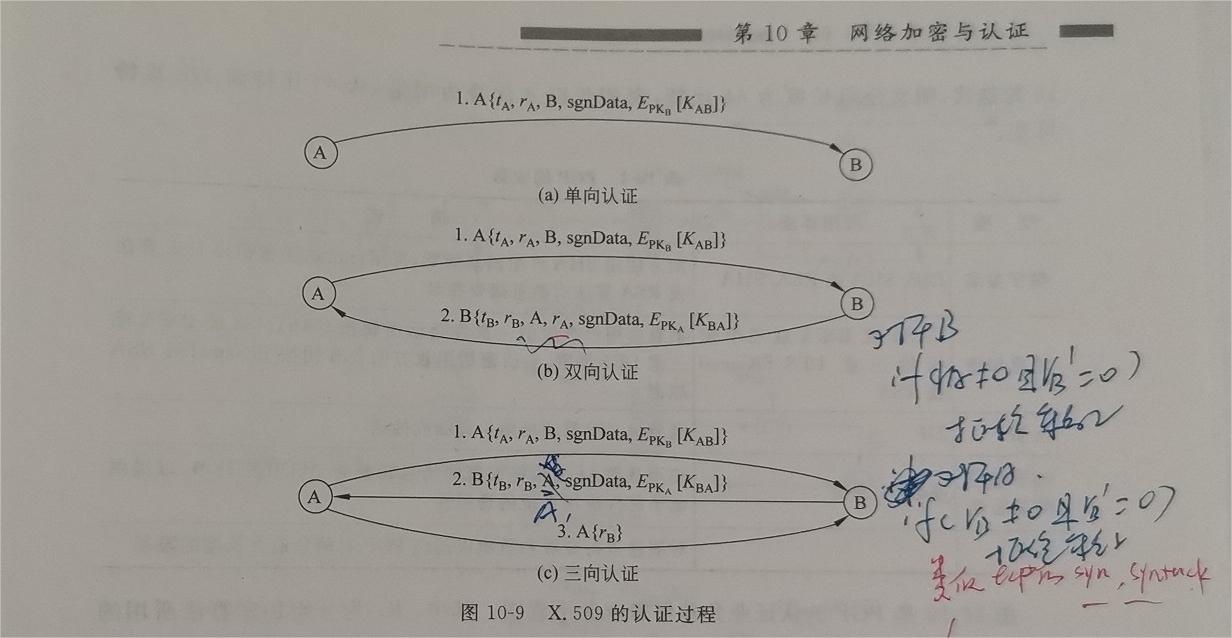 第 10 章 网络加密与认证
1. A{tA, rA, B, sgnData, EPKB [KAB]}
A
B
(a) 单向认证
1. A{tA, rA, B, sgnData, EPKB [KAB]}
A
B
2. B{tB, rB, A, rA, sgnData, EPKA [KBA]}
(b) 双向认证
1. A{tA, rA, B, sgnData, EPKB [KAB]}
2. B{tB, rB, A, sgnData, EPKA [KBA]}
A
B
A
3. A{rB}
(c) 三向认证
图 10-9 X. 509 的认证过程
对于B
对于B.
类似 tcp的 syn, syn+ack